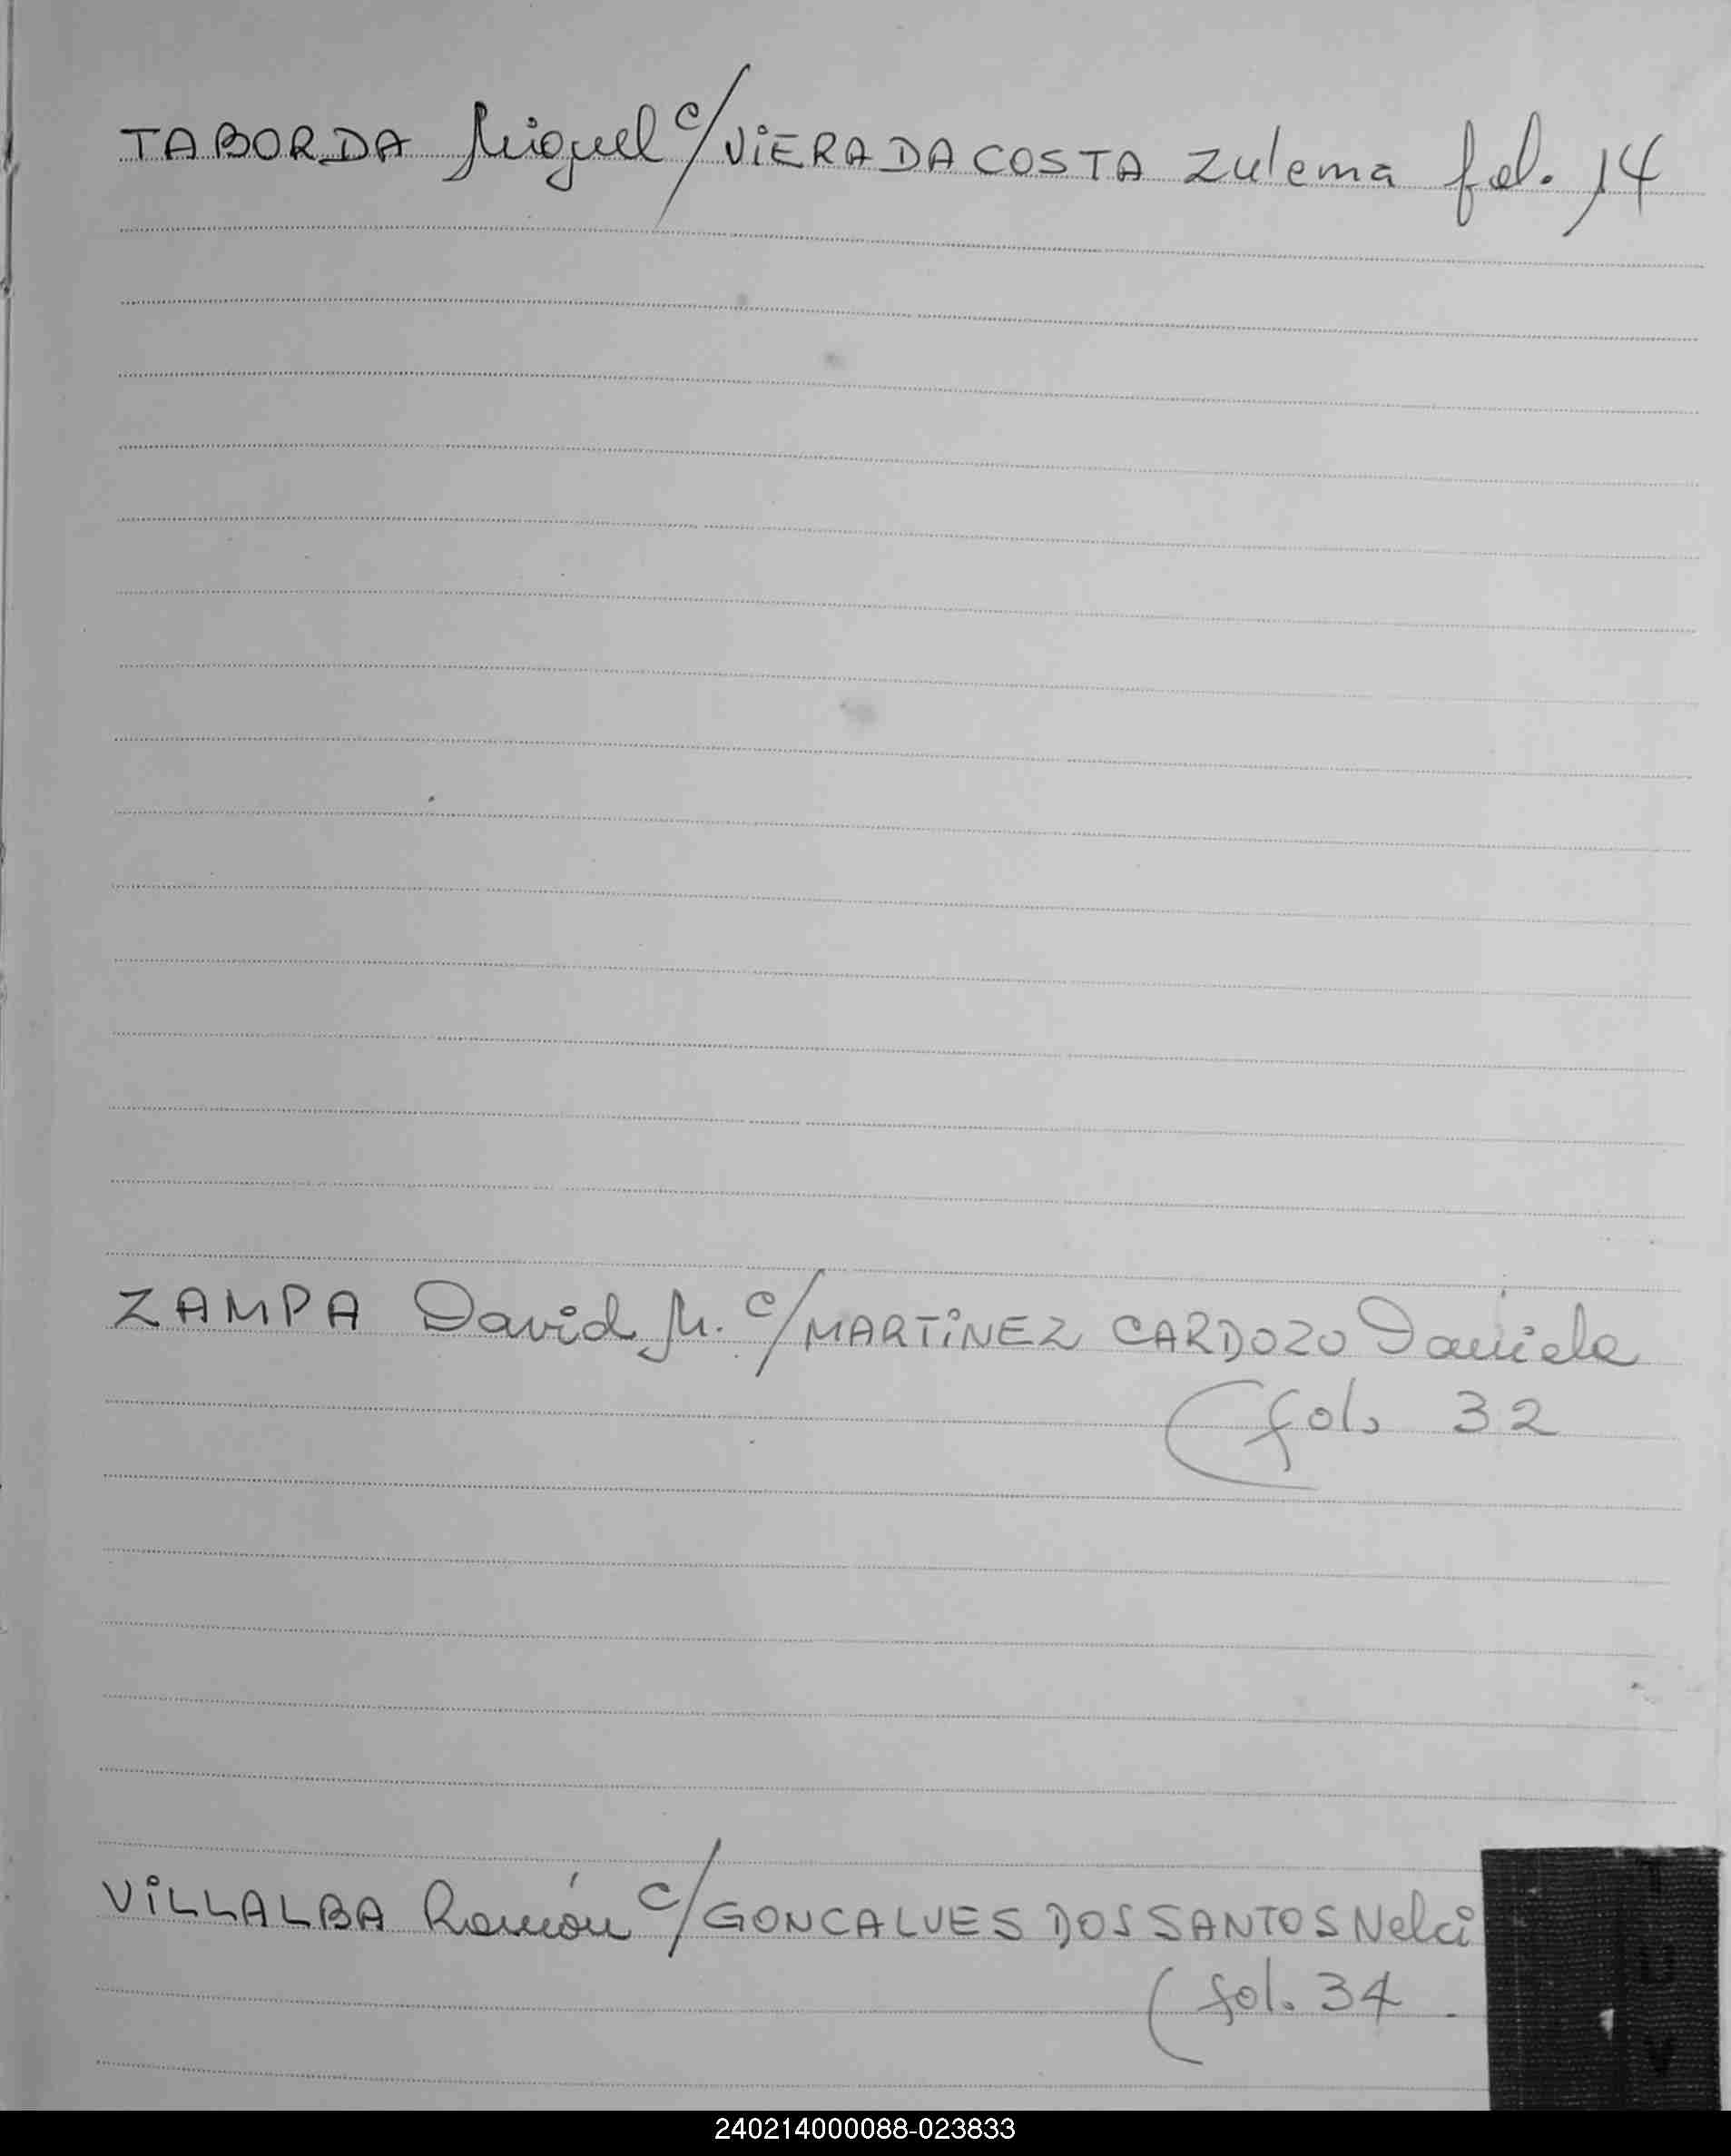 TABORDA Miguel c/ VIERA DA COSTA Zulema fol. 14
ZAMPA David M. c/ MARTINEZ CARDOZO Daniela
(fol. 32
VILLALBA Ramón c/ GONCALVES DOS SANTOS Nelci
(fol. 34.
T
U
V
240214000088-023833